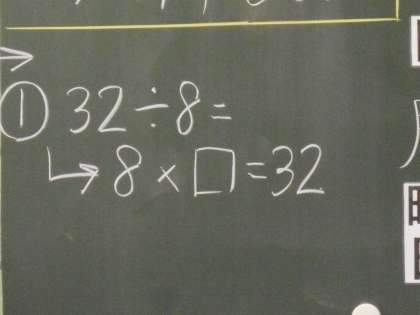 ① 32÷8=
↳ 8×□=32